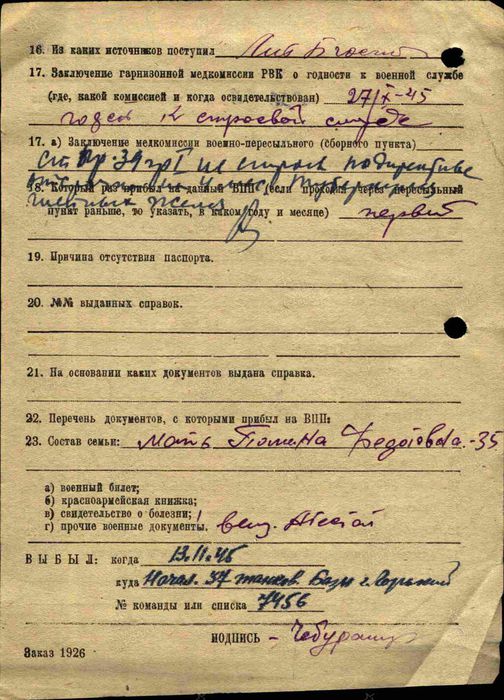 16. Из каких источников поступил
17. Заключение гарнизонной медкомиссии РВК о годности к военной службе
(где, какой комиссией и когда освидетельствован) 27/X-45
годен к строевой службе
17. а) Заключение медкомиссии военно-пересыльного (сборного пункта)
ст
18. Который раз прибыл на данный ВПП (если проходил через пересыльный
пункт раньше, то указать, в каком году и месяце) первый
19. Причина отсутствия паспорта.
20. №№ выданных справок.
21. На основании каких документов выдана справка.
22. Перечень документов, с которыми прибыл на ВПП:
23. Состав семьи: мать Полина Федотовна-35
а) военный билет;
б) красноармейская книжка;
в) свидетельство о болезни;
г) прочие военные документы.
ВЫБЫЛ: когда 13.11.45
куда Начал. 37 танков. Базы г. Горький
№ команды или списка 7456
ПОДПИСЬ -
Заказ 1926